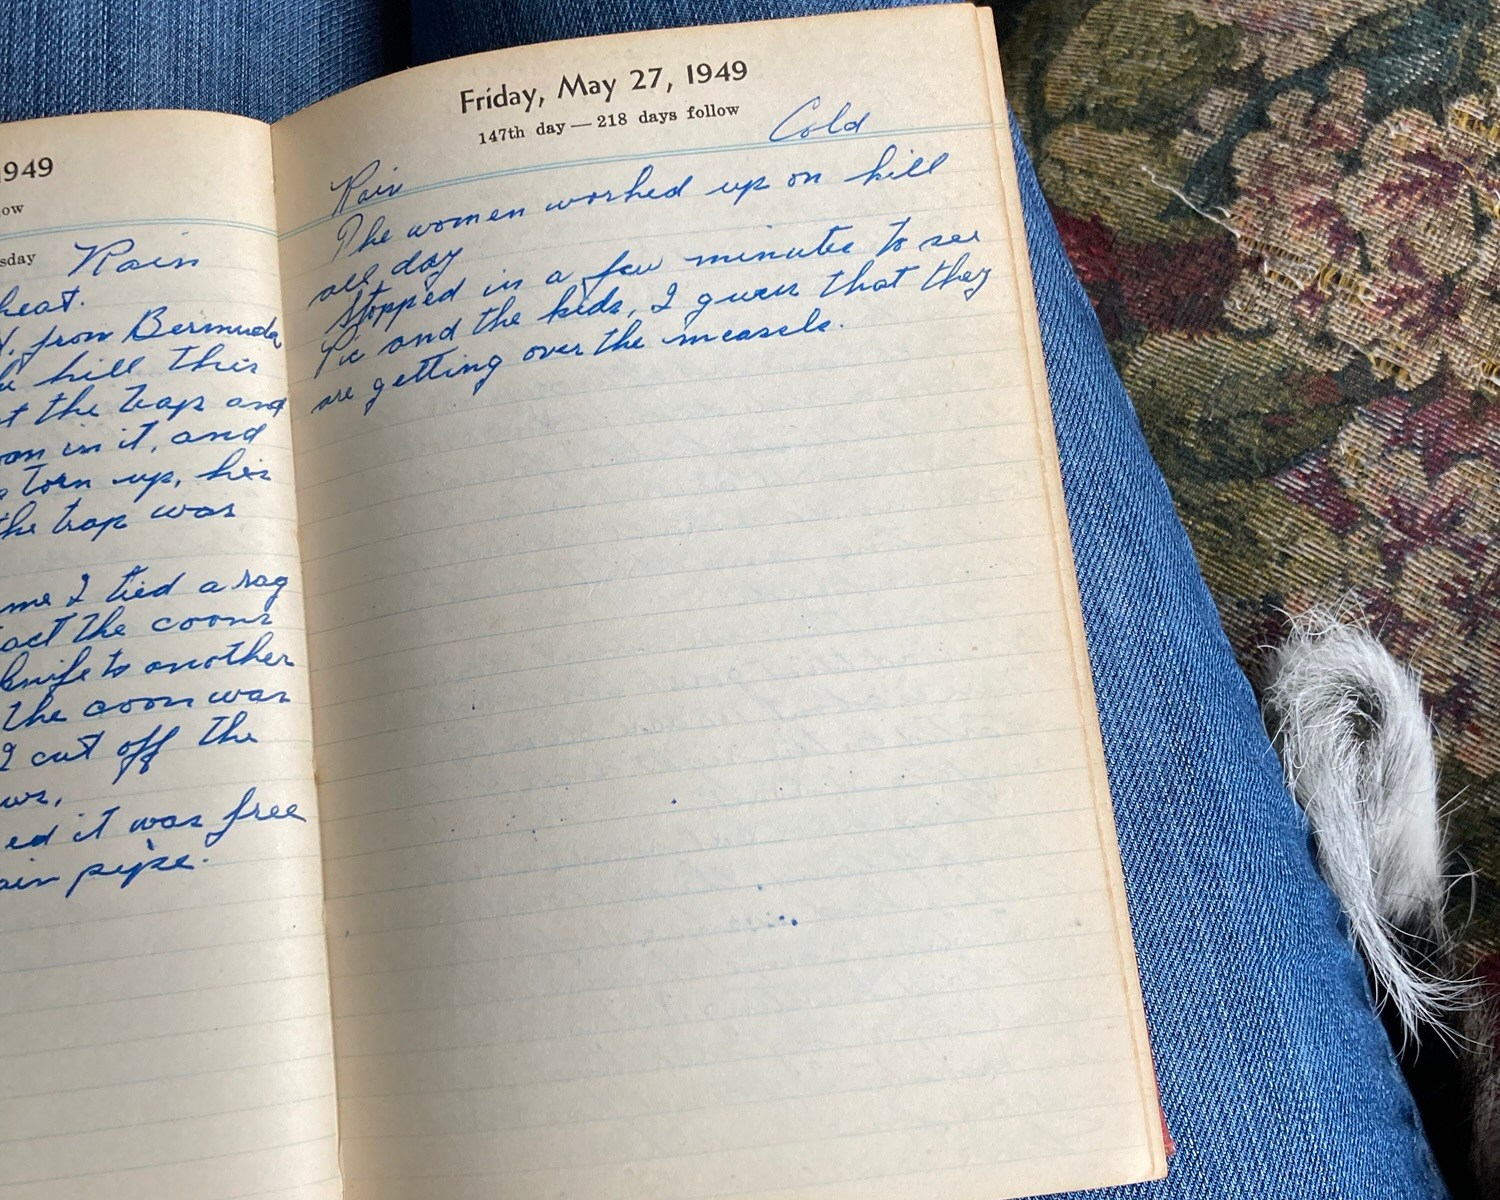 1949
ow
sday Rain
heat.
from Bermuda
hill this
t the trap and
on in it, and
torn up, his
the trap was
me I tied a rag
act the coons
knife to another
the coon was
I cut off the
ws,
ed it was free
ain pipe.
Friday, May 27, 1949
147th day — 218 days follow
Cold
Rain
The women worked up on hill
all day
Stopped in a few minutes to see
Vic and the kids, I guess that they
are getting over the measels.